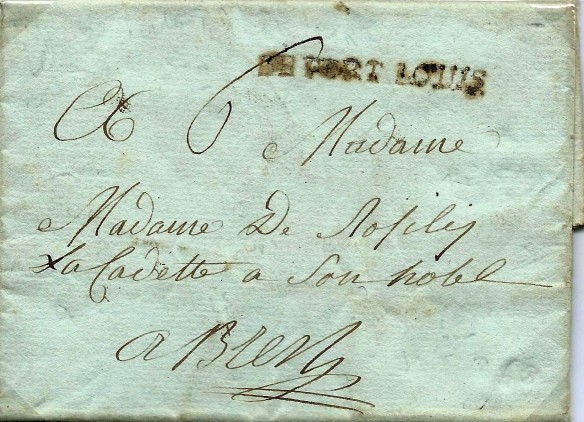 DE PORT LOUIS
6
Madame
Madame De Rosily
La Cadette a Son hotel
a Brest